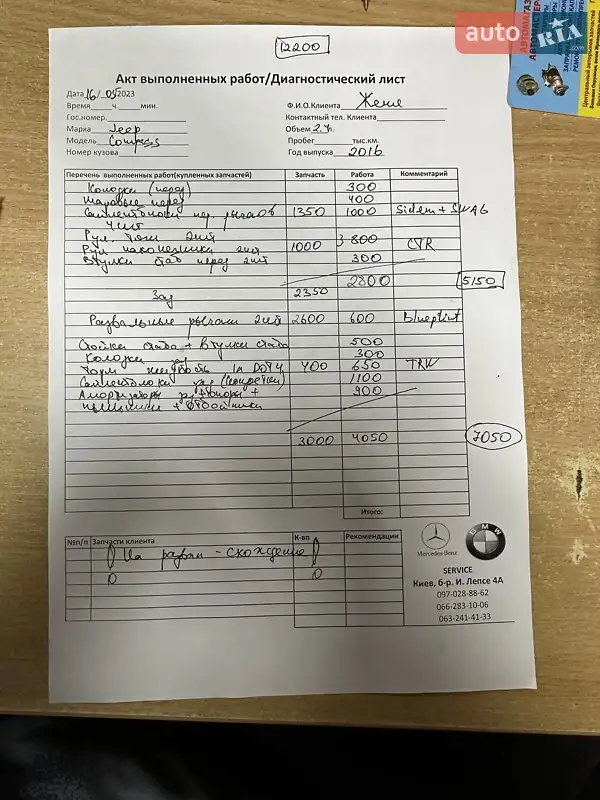 auto RIA.com
АВТОМАГАЗ
АВТОМАСТЕР
12200
Акт выполненных работ/Диагностический лист
Дата 16/05 2023
Время ч. мин. Ф.И.О.Клиента Женя
Гос.номер. Контактный тел. Клиента
Марка Jeep Объем 2.4л.
Модель Compass Пробег тыс.км.
Номер кузова Год выпуска 2016
Перечень выполненных работ(купленных запчастей) Запчасть Работа Комментарий
Колодки (перед) 300
Шаровые перед 400
Сайлентблоки пер. рычагов 1350 1000 Sidem + SWAG
4шт
Рул. тяги 2шт
Рул наконечники 2шт 1000 800 CTR
Втулки стаб перед 2шт 300
2800 5150
Зад 2350
Развальные рычаги 2шт 2600 600 blueprint
Стойки стаба + втулки стаба 500
Колодки 300
Торм жидкость 1л DOT4 400 650 TRW
Сайлентблоки 1100
Амортизаторы + опоры + 900
пыльники + отбойники
3000 4050 7050
Итого:
№п/п Запчасти клиента К-во Рекомендации
На развал - схождение
Mercedes-Benz BMW
SERVICE
Киев, б-р. И. Лепсе 4А
097-028-88-62
066-283-10-06
063-241-41-33